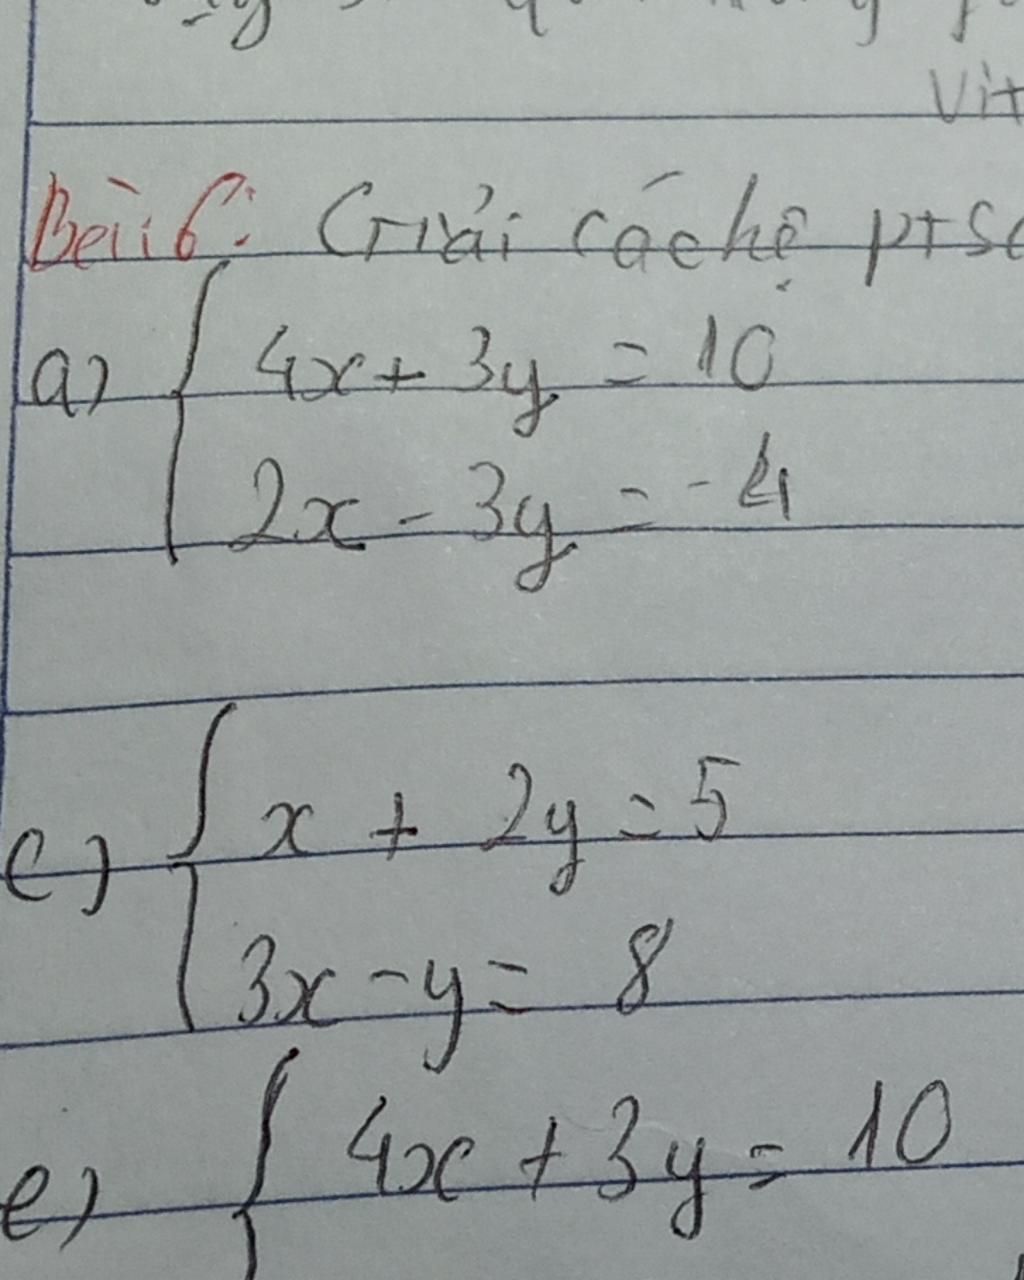 Bài 6: Giải các hệ pt
a) { 4x + 3y = 10
2x - 3y = -4
c) { x + 2y = 5
3x - y = 8
e) { 4x + 3y = 10